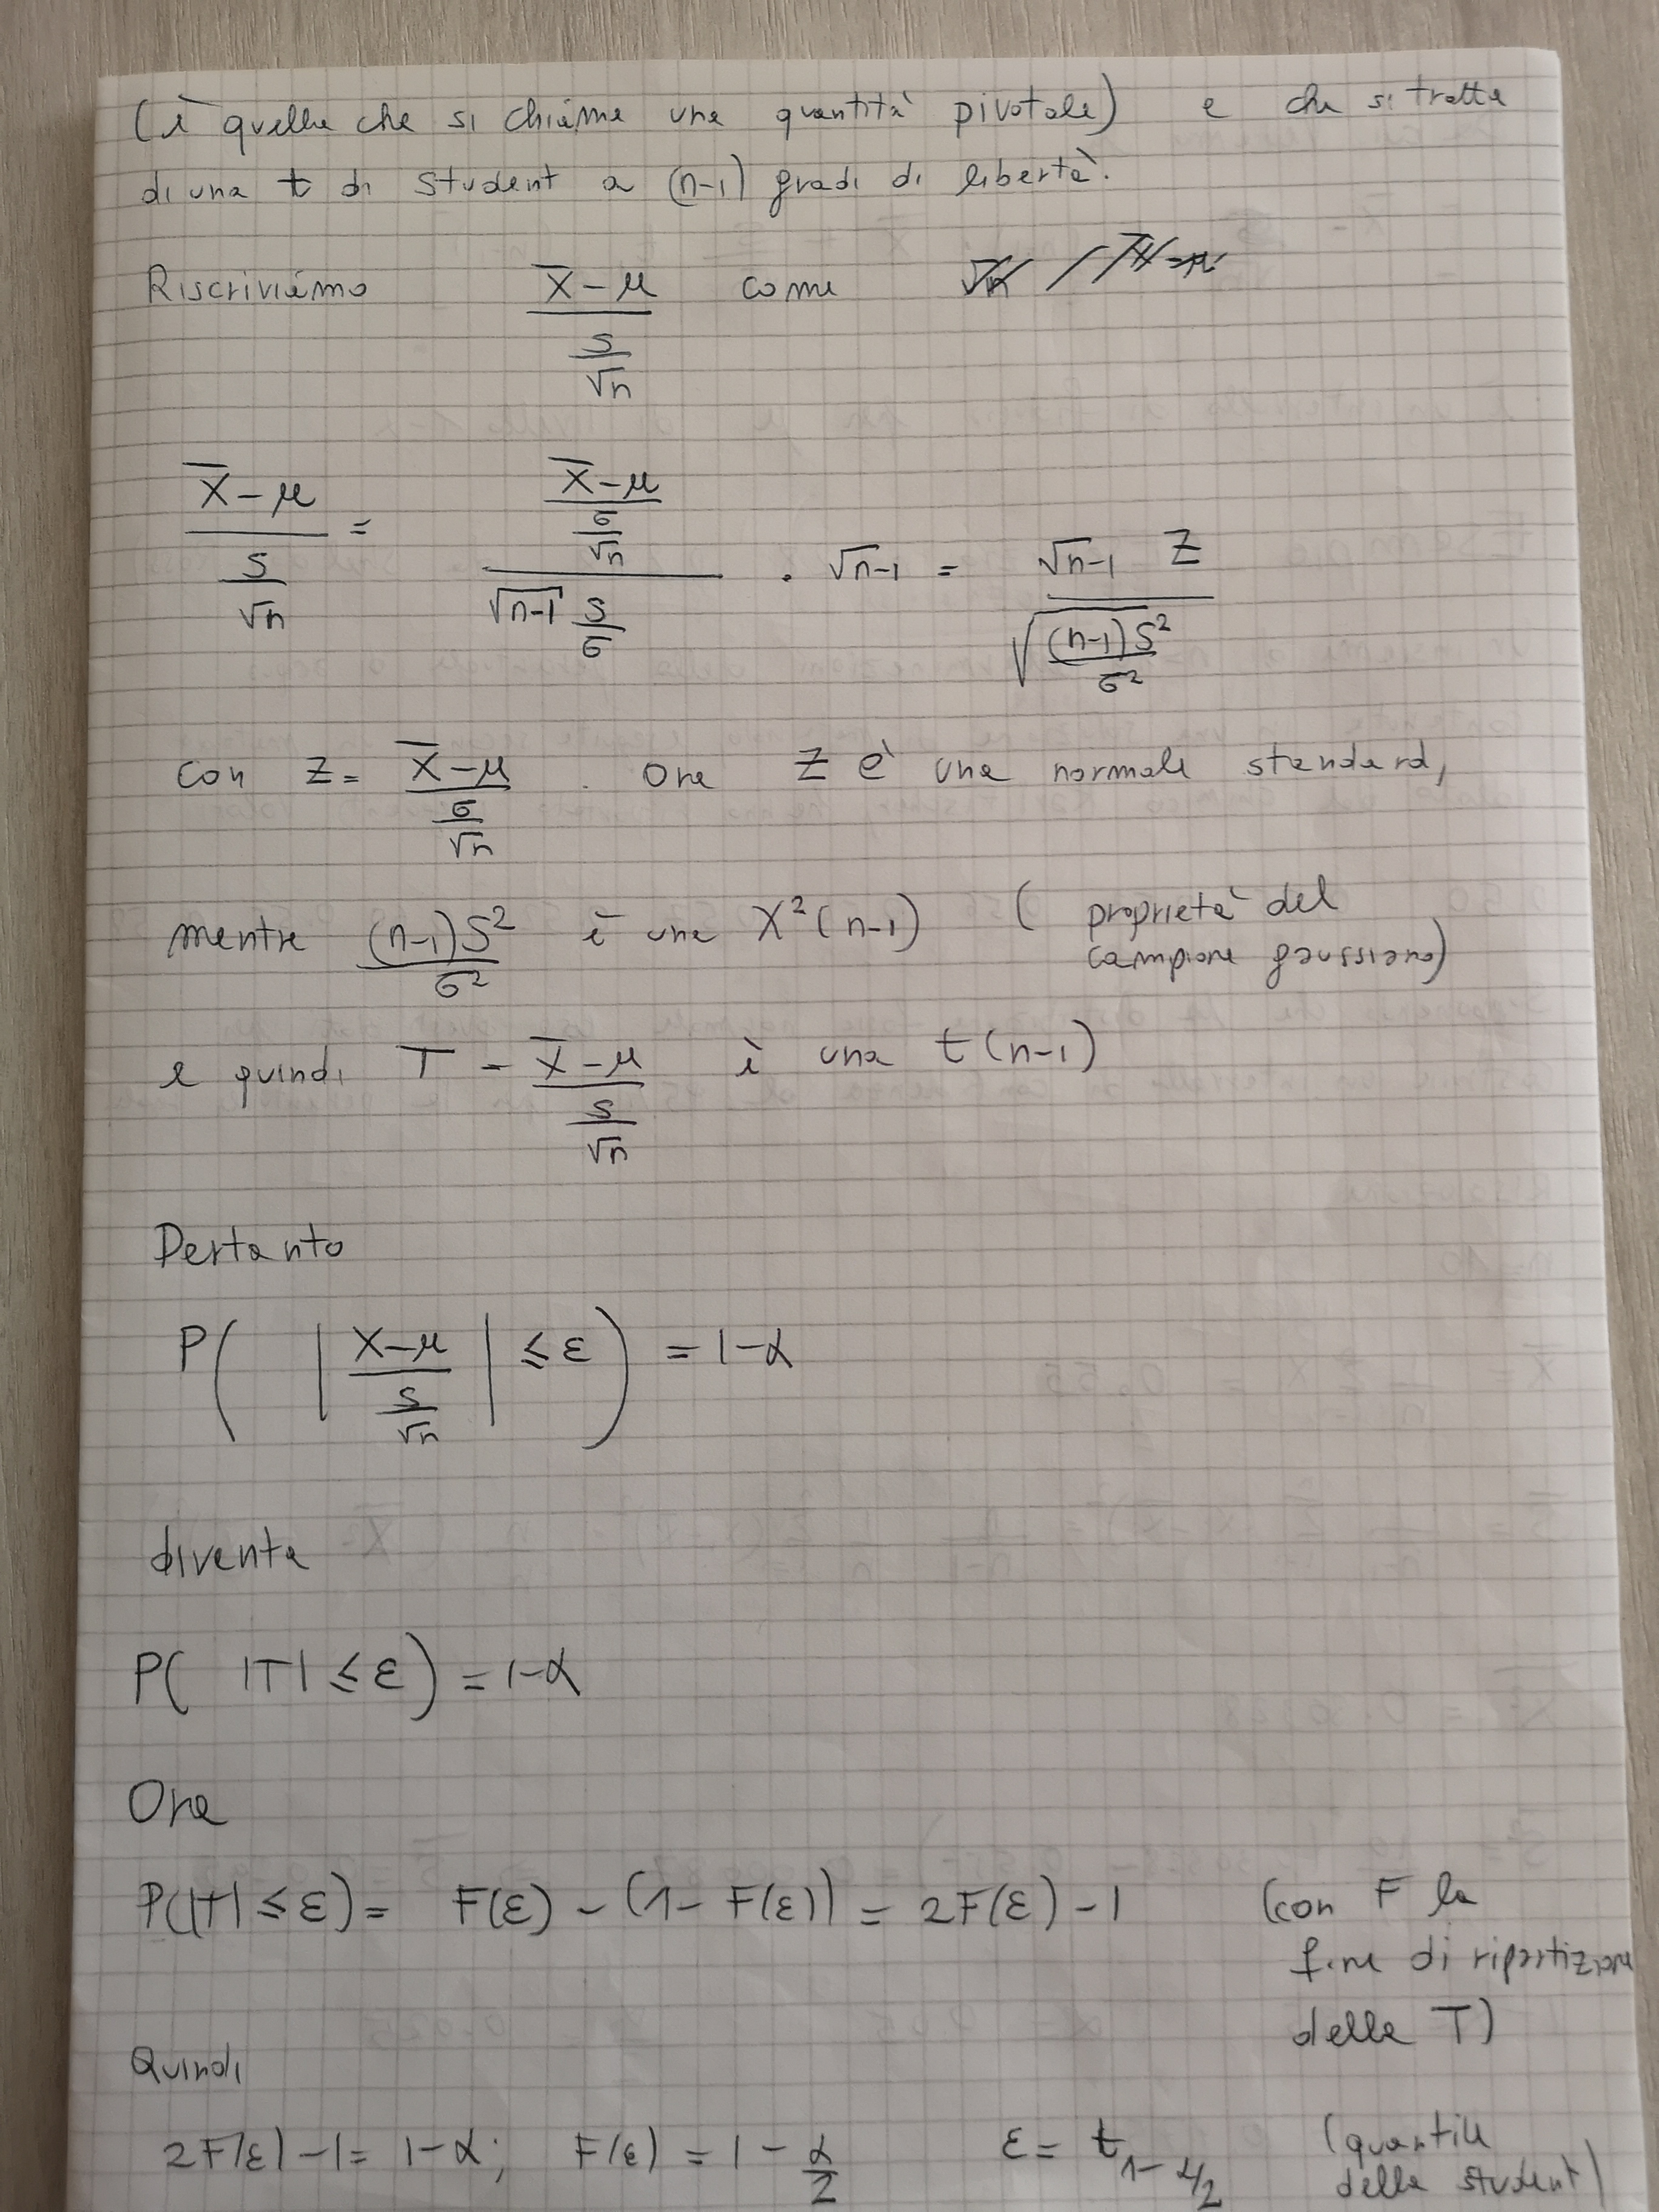 (è quella che si chiama una quantità pivotale) e che si tratta
di una t di student a (n-1) gradi di libertà.
Riscriviamo (X̄-μ)/(S/√n) come
(X̄-μ)/(S/√n) = ((X̄-μ)/(σ/√n))/(√n-1 S/σ) · √n-1 = (√n-1 Z)/√((n-1)S²/σ²)
con Z = (X̄-μ)/(σ/√n). Ora Z è una normale standard,
mentre (n-1)S²/σ² è una X²(n-1) (proprietà del
campione gaussiano)
e quindi T = (X̄-μ)/(S/√n) è una t(n-1)
Pertanto
P(|(X-μ)/(S/√n)| ≤ ε) = 1-α
diventa
P(|T| ≤ ε) = 1-α
Ora
P(|T| ≤ ε) = F(ε) - (1- F(ε)) = 2F(ε) -1 (con F la
di ripartizione
della T)
Quindi
2F(ε) -1 = 1-α; F(ε) = 1 - α/2 ε = t₁₋α/₂ (quantile
della student)